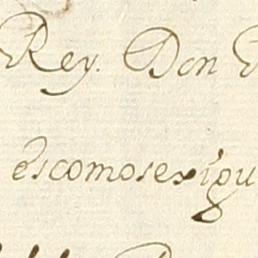 Rey. Don
escomosexigu